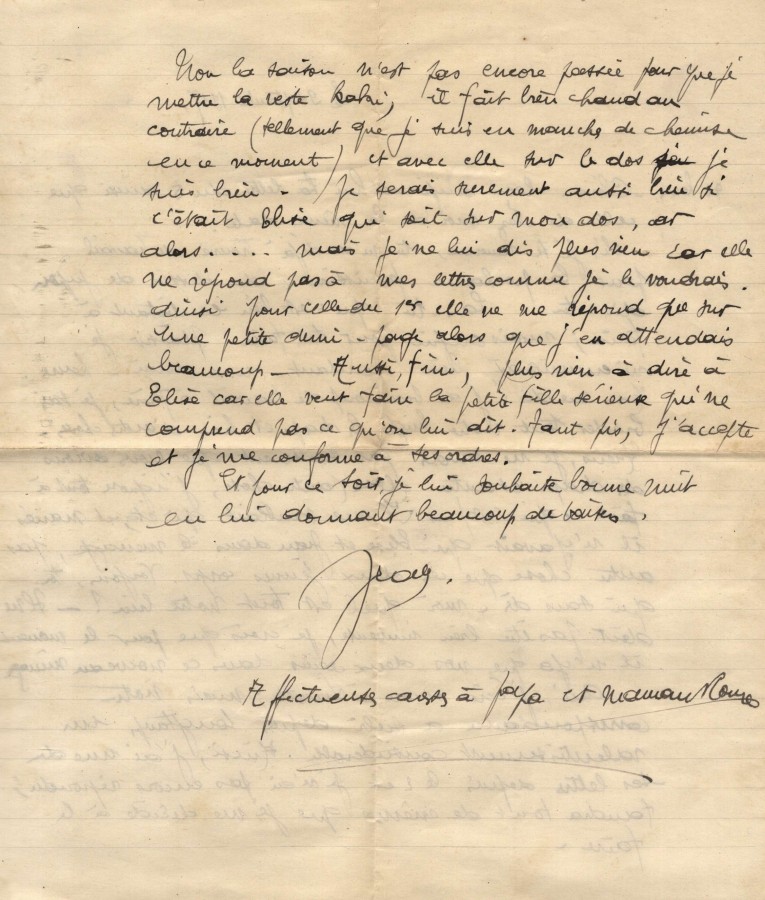 Non la saison n'est pas encore passée pour que je
mettre la veste kaki, il fait bien chaud au
contraire (tellement que je suis en manche de chemise
en ce moment) et avec elle sur le dos je
suis bien - Je serais surement aussi bien si
c'était Elise qui soit sur mon dos, et
alors.... mais je ne lui dis plus rien car elle
ne répond pas à mes lettres comme je le voudrais.
Ainsi pour celle du 1er elle ne me répond que sur
une petite demi-page alors que j'en attendais
beaucoup - Aussi, fini, plus rien à dire à
Elise car elle veut faire la petite fille sérieuse qui ne
comprend pas ce qu'on lui dit. Tant pis, j'accepte
et je me conforme à ses ordres.
Et pour ce soir je lui souhaite bonne nuit
en lui donnant beaucoup de baisers.
Affectueuses caresses à papa et maman